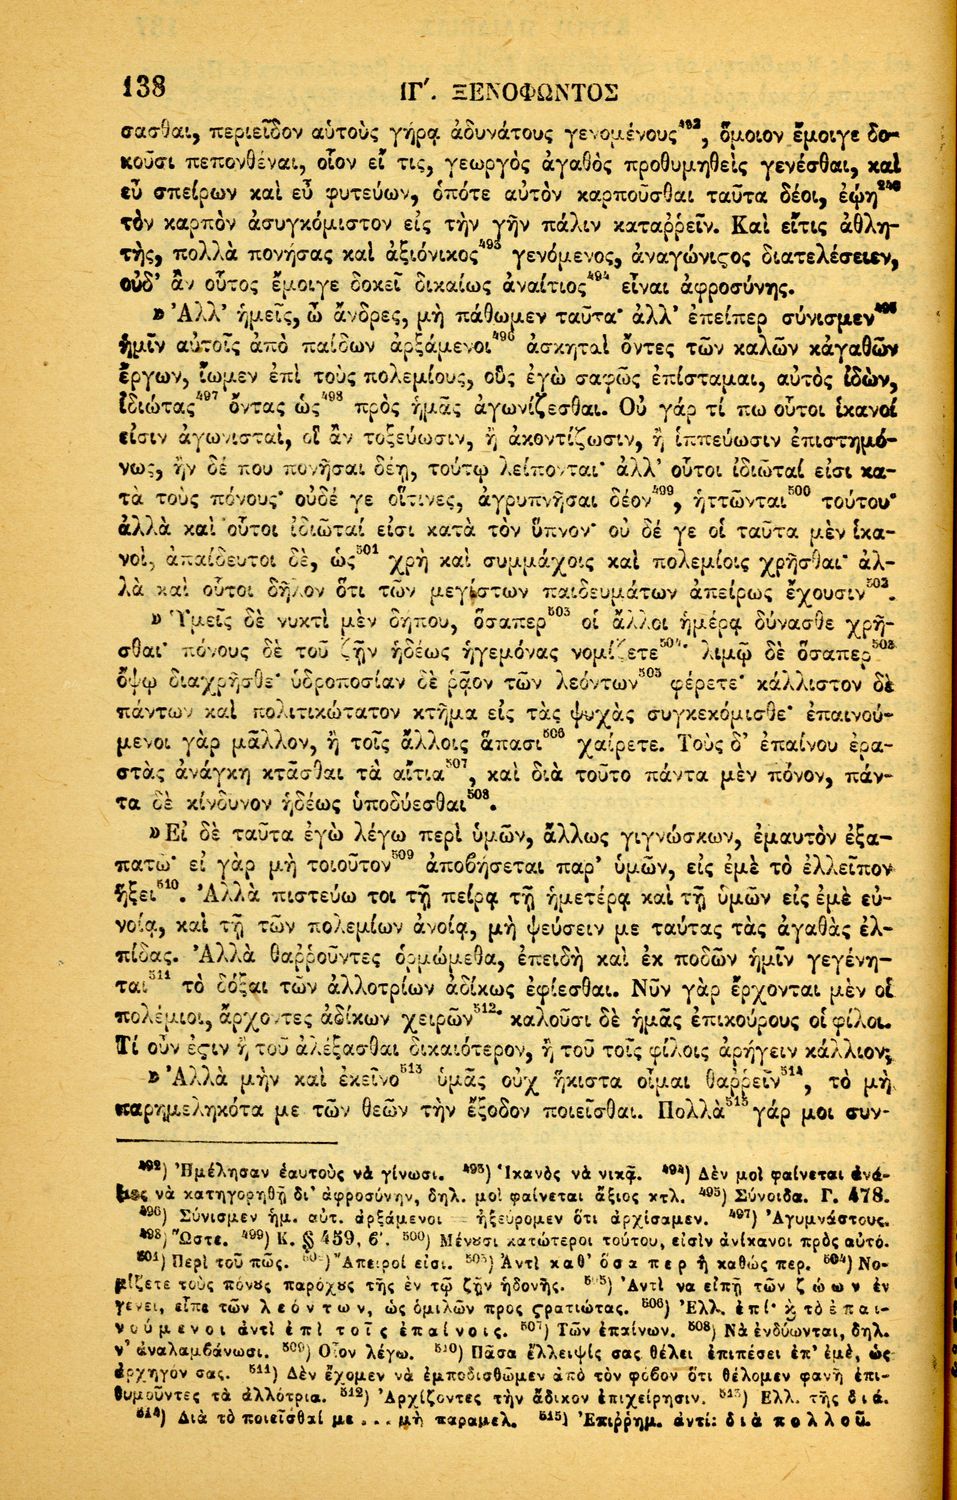 138
ΙΓ΄. ΞΕΝΟΦΩΝΤΟΣ
σασθαι, περιεῖδον αὑτοὺς γήρᾳ ἀδυνάτους γενομένους⁴⁹², ὅμοιον ἔμοιγε δο-
κοῦσι πεπονθέναι, οἷον εἴ τις, γεωργὸς ἀγαθὸς προθυμηθεὶς γενέσθαι, καὶ
εὖ σπείρων καὶ εὖ φυτεύων, ὁπότε αὐτὸν καρποῦσθαι ταῦτα δέοι, ἐῴη²⁴⁶
τὸν καρπὸν ἀσυγκόμιστον εἰς τὴν γῆν πάλιν καταῤῥεῖν. Καὶ εἴτις ἀθλη-
τὴς, πολλὰ πονήσας καὶ ἀξιόνικος⁴⁹³ γενόμενος, ἀναγώνιϛος διατελέσειεν,
οὐδ' ἂν οὗτος ἔμοιγε δοκεῖ δικαίως ἀναίτιος⁴⁹⁴ εἶναι ἀφροσύνης.
» Ἀλλ' ἡμεῖς, ὦ ἄνδρες, μὴ πάθωμεν ταῦτα· ἀλλ' ἐπείπερ σύνισμεν⁴⁹⁵
ἡμῖν αὐτοῖς ἀπὸ παίδων ἀρξάμενοι⁴⁹⁶ ἀσκηταὶ ὄντες τῶν καλῶν κἀγαθῶν
ἔργων, ἴωμεν ἐπὶ τοὺς πολεμίους, οὓς ἐγὼ σαφῶς ἐπίσταμαι, αὐτὸς ἰδὼν,
ἰδιώτας⁴⁹⁷ ὄντας ὡς⁴⁹⁸ πρὸς ἡμᾶς ἀγωνίζεσθαι. Οὐ γάρ τί πω οὗτοι ἱκανοί
εἰσιν ἀγωνισταὶ, οἳ ἂν τοξεύωσιν, ἢ ἀκοντίζωσιν, ἢ ἱππεύωσιν ἐπιστημό-
νως, ἢν δέ που πονῆσαι δέῃ, τούτῳ λείπονται· ἀλλ' οὗτοι ἰδιῶταί εἰσι κα-
τὰ τοὺς πόνους· οὐδέ γε οἵτινες, ἀγρυπνῆσαι δέον⁴⁹⁹, ἡττῶνται⁵⁰⁰ τούτου·
ἀλλὰ καὶ οὗτοι ἰδιῶταί εἰσι κατὰ τὸν ὕπνον· οὐ δέ γε οἱ ταῦτα μὲν ἱκα-
νοὶ, ἀπαίδευτοι δὲ, ὡς⁵⁰¹ χρὴ καὶ συμμάχοις καὶ πολεμίοις χρῆσθαι· ἀλ-
λὰ καὶ οὗτοι δῆλον ὅτι τῶν μεγίστων παιδευμάτων ἀπείρως ἔχουσιν⁵⁰².
» Ὑμεῖς δὲ νυκτὶ μὲν δήπου, ὅσαπερ⁵⁰³ οἱ ἄλλοι ἡμέρᾳ δύνασθε χρῆ-
σθαι· πόνους δὲ τοῦ ζῆν ἡδέως ἡγεμόνας νομίζετε⁵⁰⁴· λιμῷ δὲ ὅσαπερ⁵⁰³
ὄψῳ διαχρῆσθε· ὑδροποσίαν δὲ ῥᾷον τῶν λεόντων⁵⁰⁵ φέρετε· κάλλιστον δὲ
πάντων καὶ πολιτικώτατον κτῆμα εἰς τὰς ψυχὰς συγκεκόμισθε· ἐπαινού-
μενοι γὰρ μᾶλλον, ἢ τοῖς ἄλλοις ἅπασι⁵⁰⁶ χαίρετε. Τοὺς δ' ἐπαίνου ἐρα-
στὰς ἀνάγκη κτᾶσθαι τὰ αἴτια⁵⁰⁷, καὶ διὰ τοῦτο πάντα μὲν πόνον, πάν-
τα δὲ κίνδυνον ἡδέως ὑποδύεσθαι⁵⁰⁸.
»Εἰ δὲ ταῦτα ἐγὼ λέγω περὶ ὑμῶν, ἄλλως γιγνώσκων, ἐμαυτὸν ἐξα-
πατῶ· εἰ γὰρ μὴ τοιοῦτον⁵⁰⁹ ἀποβήσεται παρ' ὑμῶν, εἰς ἐμὲ τὸ ἐλλεῖπον
ἥξει⁵¹⁰. Ἀλλὰ πιστεύω τοι τῇ πείρᾳ τῇ ἡμετέρᾳ καὶ τῇ ὑμῶν εἰς ἐμὲ εὐ-
νοίᾳ, καὶ τῇ τῶν πολεμίων ἀνοίᾳ, μὴ ψεύσειν με ταύτας τὰς ἀγαθὰς ἐλ-
πίδας. Ἀλλὰ θαῤῥοῦντες ὁρμώμεθα, ἐπειδὴ καὶ ἐκ ποδῶν ἡμῖν γεγένη-
ται⁵¹¹ τὸ δόξαι τῶν ἀλλοτρίων ἀδίκως ἐφίεσθαι. Νῦν γὰρ ἔρχονται μὲν οἱ
πολέμιοι, ἄρχοντες ἀδίκων χειρῶν⁵¹²· καλοῦσι δὲ ἡμᾶς ἐπικούρους οἱ φίλοι.
Τί οὖν ἐϛιν ἢ τοῦ ἀλέξασθαι δικαιότερον, ἢ τοῦ τοῖς φίλοις ἀρήγειν κάλλιον;
» Ἀλλὰ μὴν καὶ ἐκεῖνο⁵¹³ ὑμᾶς οὐχ ἥκιστα οἶμαι θαῤῥεῖν⁵¹⁴, τὸ μὴ
παρημεληκότα με τῶν θεῶν τὴν ἔξοδον ποιεῖσθαι. Πολλὰ⁵¹⁵ γάρ μοι συν-
⁴⁹²) Ἠμέλησαν ἑαυτοὺς νὰ γίνωσι. ⁴⁹³) Ἱκανὸς νὰ νικᾷ. ⁴⁹⁴) Δὲν μοὶ φαίνεται ἀνά-
ξιος νὰ κατηγορηθῇ δι' ἀφροσύνην, δηλ. μοὶ φαίνεται ἄξιος κτλ. ⁴⁹⁵) Σύνοιδα. Γ. 478.
⁴⁹⁶) Σύνισμεν ἡμ. αὐτ. ἀρξάμενοι = ἠξεύρομεν ὅτι ἀρχίσαμεν. ⁴⁹⁷) Ἀγυμνάστους.
⁴⁹⁸) Ὥστε. ⁴⁹⁹) Κ. § 459, 6'. ⁵⁰⁰) Μένȣσι κατώτεροι τούτου, εἰσὶν ἀνίκανοι πρὸς αὐτό.
⁵⁰¹) Περὶ τοῦ πῶς. ⁵⁰²) Ἄπειροί εἰσι. ⁵⁰³) Ἀντὶ καθ' ὅσα περ ἢ καθώς περ. ⁵⁰⁴) Νο-
μίζετε τοὺς πόνȣς παρόχȣς τῆς ἐν τῷ ζῆν ἡδονῆς. ⁵⁰⁵) Ἀντὶ να εἰπῇ τῶν ζώων ἐν
γένει, εἶπε τῶν λεόντων, ὡς ὁμιλῶν προς ϛρατιώτας. ⁵⁰⁶) Ἑλλ. ἐπί· ϗ τὸ ἐπαι-
νούμενοι ἀντὶ ἐπὶ τοῖς ἐπαίνοις. ⁵⁰⁷) Τῶν ἐπαίνων. ⁵⁰⁸) Νὰ ἐνδύωνται, δηλ.
ν' ἀναλαμβάνωσι. ⁵⁰⁹) Οἷον λέγω. ⁵¹⁰) Πᾶσα ἔλλειψίς σας θέλει ἐπιπέσει ἐπ' ἐμὲ, ὡς
ἀρχηγόν σας. ⁵¹¹) Δὲν ἔχομεν νὰ ἐμποδισθῶμεν ἀπὸ τὸν φόβον ὅτι θέλομεν φανῆ ἐπι-
θυμοῦντες τὰ ἀλλότρια. ⁵¹²) Ἀρχίζοντες τὴν ἄδικον ἐπιχείρησιν. ⁵¹³) Ελλ. τῆς διά.
⁵¹⁴) Διὰ τὸ ποιεῖσθαί με ... μὴ παραμελ. ⁵¹⁵) Ἐπιῤῥημ. ἀντί: διὰ πολλοῦ.